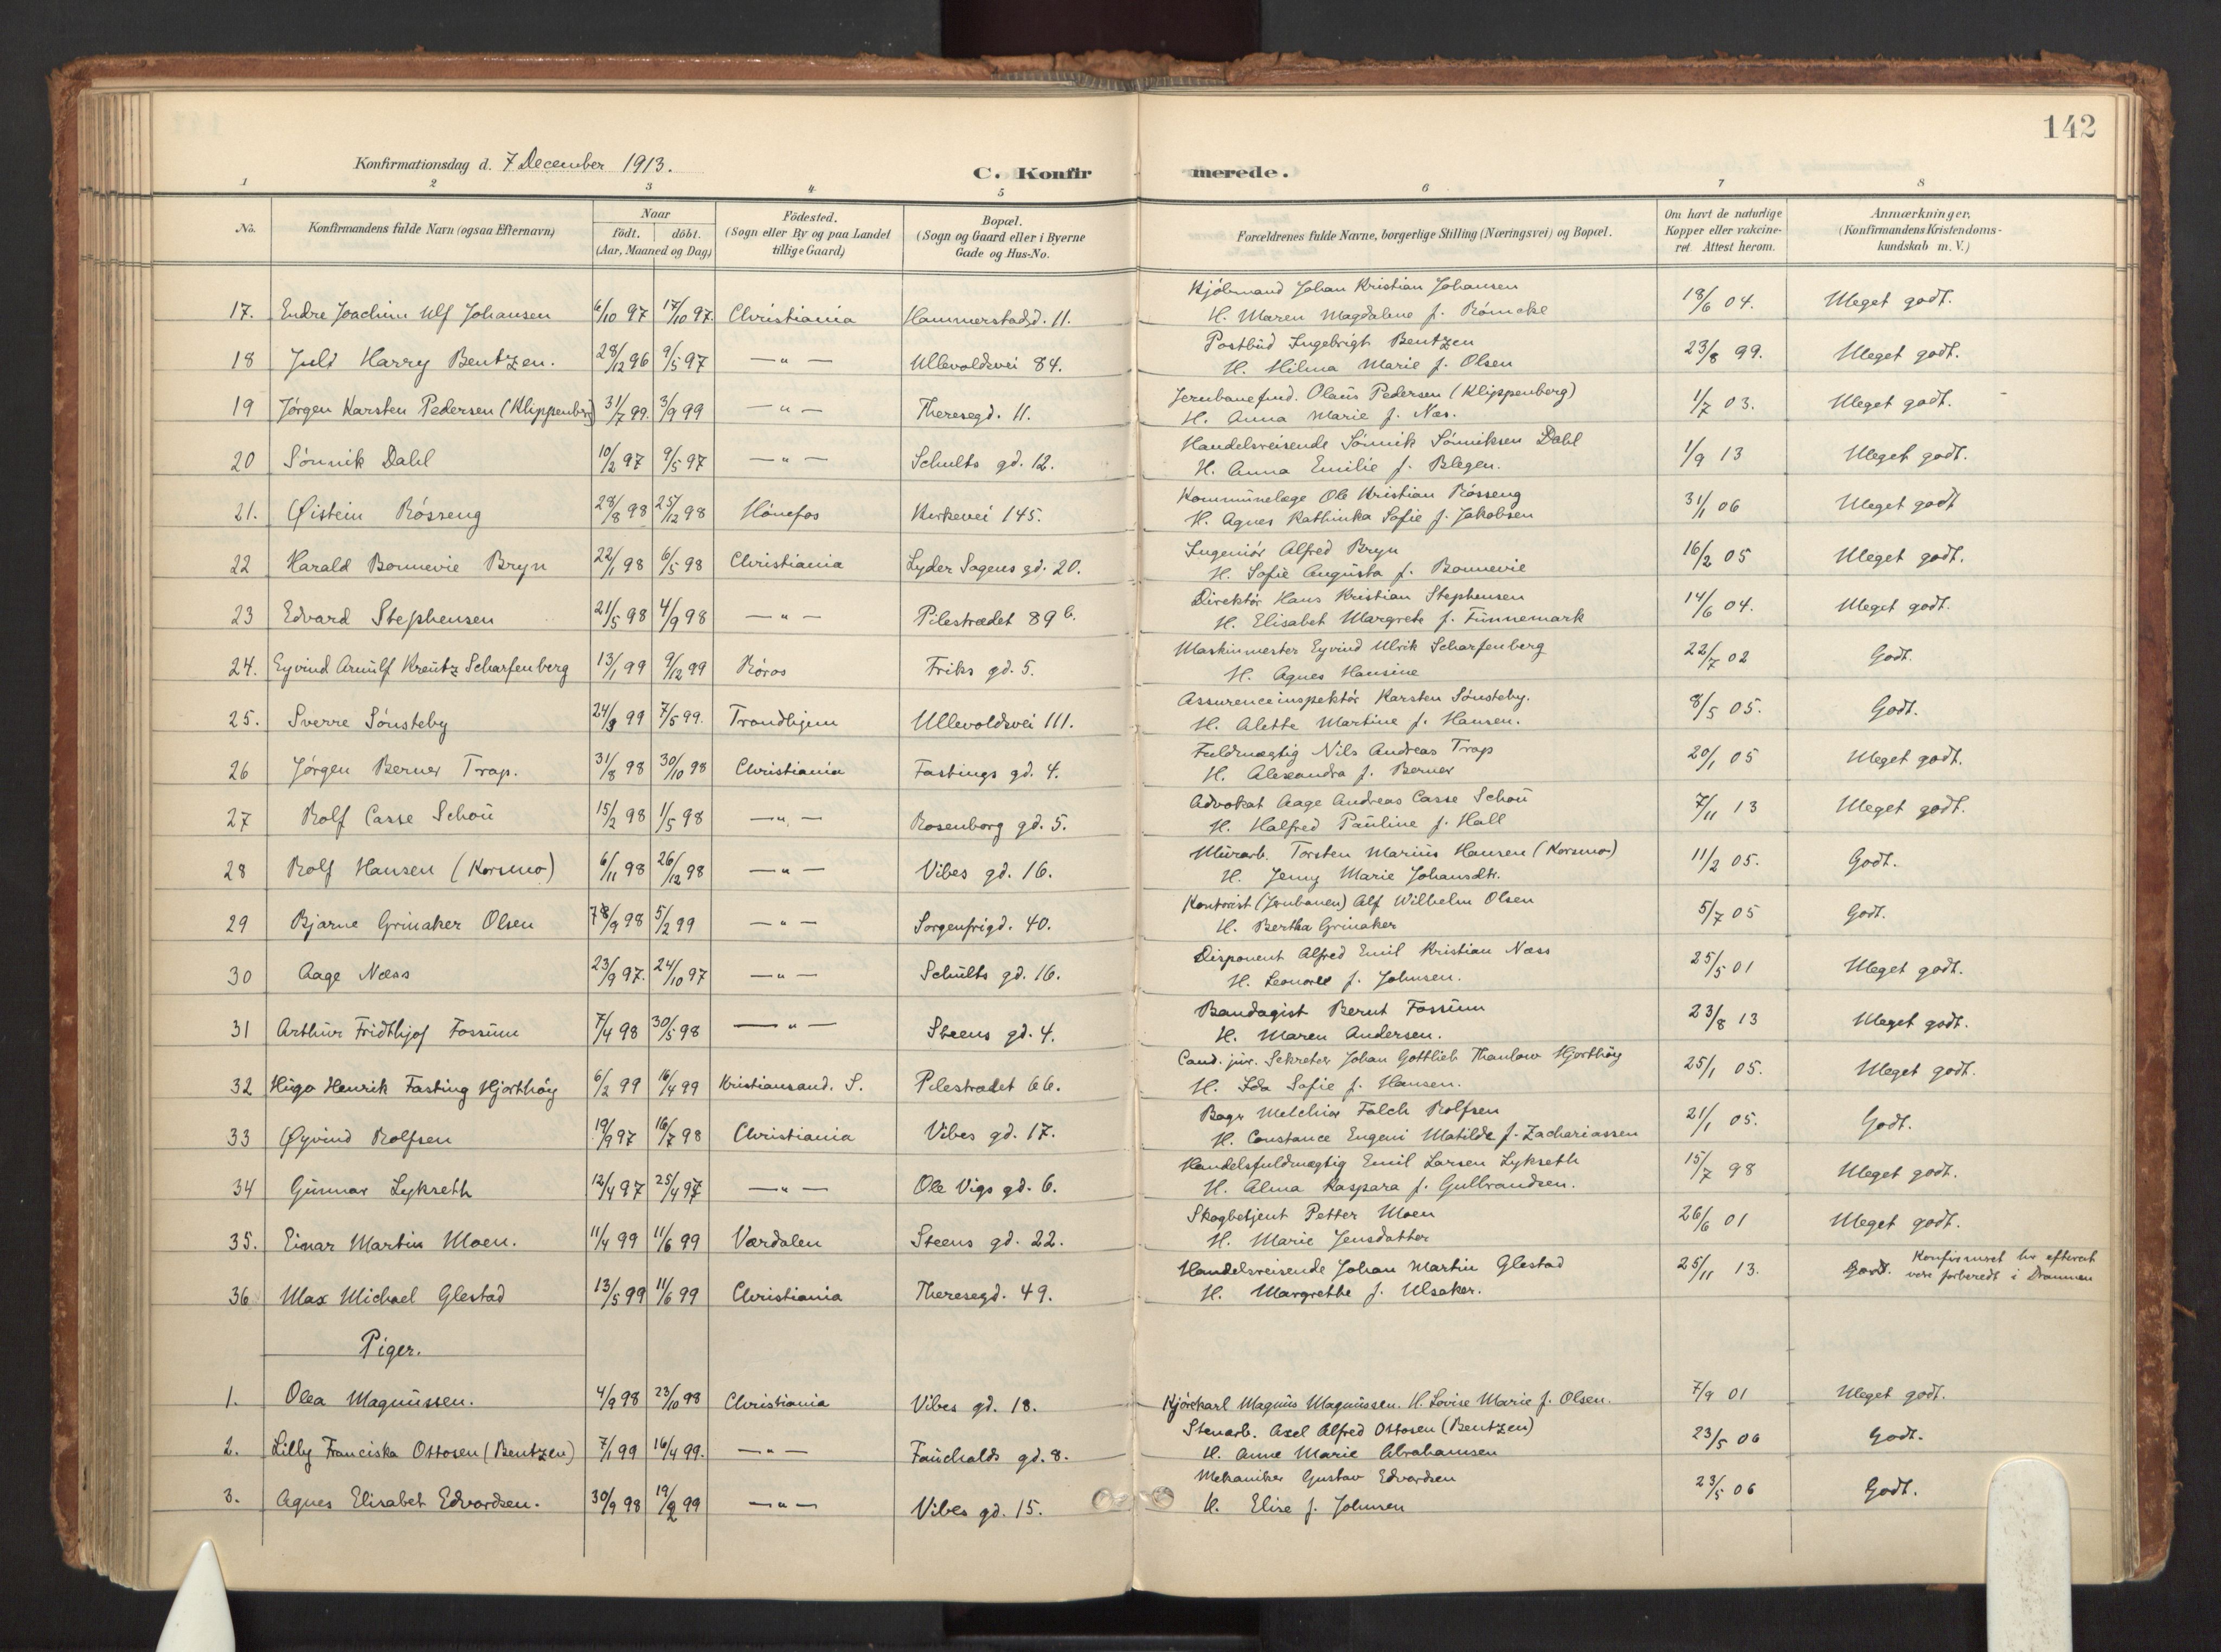 142
Konfirmationsdag d. 7 December 1913.
C. Konfirmerede.
1 2 3 4 5 6 7 8
No. Konfirmandens fulde Navn (ogsaa Efternavn) Naar født. døbt. (Aar, Maaned og Dag) Fødested. (Sogn eller By og paa Landet tillige Gaard) Bopæl. (Sogn og Gaard eller i Byerne Gade og Hus-No. Forældrenes fulde Navne, borgerlige Stilling (Næringsvei) og Bopæl. Om havt de naturlige Kopper eller vakcineret. Attest herom. Anmærkninger. (Konfirmandens Kristendomskundskab m. V.)
17. Endre Joachim Ulf Johansen 6/10 97 17/10 97. Christiania Hammerstadgd. 11. Johan Kristian Johansen 18/6 04. Meget godt.
H. Maren Magdalene f. Römcke
18 Juls Harry Bentzen. 28/12 96 9/5 97 — " — Ullevoldsvei 84. Postbud Ingebrigt Bentzen 23/8 99. Meget godt.
H. Hilma Marie f. Olsen
19 Jørgen Karsten Pedersen (Klippenberg) 31/7 99. 3/9 99 — " — Theresegd. 11. Jernbanefund. Olaus Pedersen (Klippenberg) 1/7 03. Meget godt.
H. Anna Marie f. Næs.
20 Sönnik Dahl 10/2 97 9/5 97 — " — Schults gd. 12. Handelsreisende Sönnik Sönniksen Dahl 1/9 13 Meget godt.
H. Anna Emilie f. Blegen.
21. Øistein Rösseng 28/8 98 25/12 98 Hönefos Kirkevei 145. Kommunelæge Ole Kristian Rösseng 31/1 06 Meget godt
H. Agnes Kathinka Sofie f. Jakobsen
22 Harald Bonnevie Bryn 22/1 98 6/5 98 Christiania Lyder Sagens gd. 20. Ingeniör Alfred Bryn 16/2 05 Meget godt.
H. Sofie Augusta f. Bonnevie
23 Edvard Stephensen 21/5 98 4/9 98 — " — Pilestrædet 89 b. Direktör Hans Kristian Stephensen 14/6 04. Meget godt.
H. Elisabet Margrete f. Funnemark
24. Eyvind Arnulf Kreutz Scharfenberg 13/1 99 9/12 99 Röros Friks gd. 5. Maskinmester Eyvind Ulrik Scharfenberg 22/7 02 Godt.
H. Agnes Hansine
25. Sverre Sönsteby 24/3 99 7/5 99. Trondhjem Ullevoldsvei 111. Assuranceinspektör Karsten Sönsteby. 8/5 05. Godt.
H. Alette Martine f. Hansen.
26 Jörgen Berner Trap. 31/8 98 30/10 98 Christiania Fastings gd. 4. Fuldmægtig Nils Andreas Trap 20/1 05 Meget godt.
H. Alexandra f. Berner
27 Rolf Casse Schou 15/2 98 1/5 98 — " — Rosenborg gd. 5. Advokat Aage Andreas Casse Schou 7/11 13 Meget godt.
H. Halfred Pauline f. Hall
28 Rolf Hansen (Korsmo) 6/11 98 26/12 98 — " — Vibes gd. 16. Murarb. Torsten Marius Hansen (Korsmo) 11/2 05. Godt.
H. Jenny Marie Johansdtr.
29 Bjarne Grinaker Olsen 98 5/2 99 — " — Sorgenfrigd. 40. Kontorist (Jernbanen) Alf Wilhelm Olsen 5/7 05 Godt.
H. Bertha Grinaker
30 Aage Næss 23/9 97. 24/10 97 — " — Schults gd. 16. Disponent Alfred Emil Kristian Næss 25/5 01 Meget godt.
H. f. Johnsen.
31 Arthur Fridthjof Fossum 7/4 98 30/5 98 — " — Steens gd. 4. Bandagist Bernt Fossum 23/8 13 Meget godt.
H. Maren Andersen.
32 Hugo Henrik Fasting Hjorthöy 6/2 99 16/4 99 Kristiansand. S. Pilestrædet 66. Cand. jur. Sekretær Johan Gottlieb Thaulow Hjorthöy 25/1 05. Meget godt.
H. Ida Sofie f. Hansen.
33 Øyvind Rolfsen 19/9 97 16/7 98 Christiania Vibes gd. 17. Bager Melchior Falch Rolfsen 21/1 05. Godt.
H. Constance Eugeni Matilde f. Zachariassen
34 Gunnar Lykseth 12/4 97 25/4 97 — " — Ole Vigs gd. 6. Handelsfuldmægtig Emil Larsen Lykseth 15/7 98 Meget godt.
H. Alma Kaspara f. Gulbrandsen.
35. Einar Martin Moen. 11/4 99 11/6 99 Værdalen Steens gd. 22. Skogbetjent Petter Moen 26/6 01 Meget godt.
H. Marie Jensdatter
36 Max Michael Glestad 13/5 99 11/6 99 Christiania Theresegd. 49. Handelsreisende Johan Martin Glestad 25/11 13. Godt. Konfirmeret her efterat
H. Margrethe f. Ulsaker. være forberedt i Drammen
Piger.
1. Olea Magnussen. 4/9 98 23/10 98 Christiania Vibes gd. 18. Kjörekarl Magnus Magnussen. H. Lovise Marie f. Olsen. 7/9 01 Meget godt.
2. Lilly Franciska Ottosen (Bentzen) 7/1 99 16/4 99. — " — Fauchalds gd. 8. Stenarb. Axel Alfred Ottosen (Bentzen) 23/5 06 Godt.
H. Anne Marie Abrahamsen
3. Agnes Elisabet Edvardsen. 30/9 98 19/2 99 — " — Vibes gd. 15. Mekaniker Gustav Edvardsen 23/5 06 Godt.
H. Elise f. Johnsen